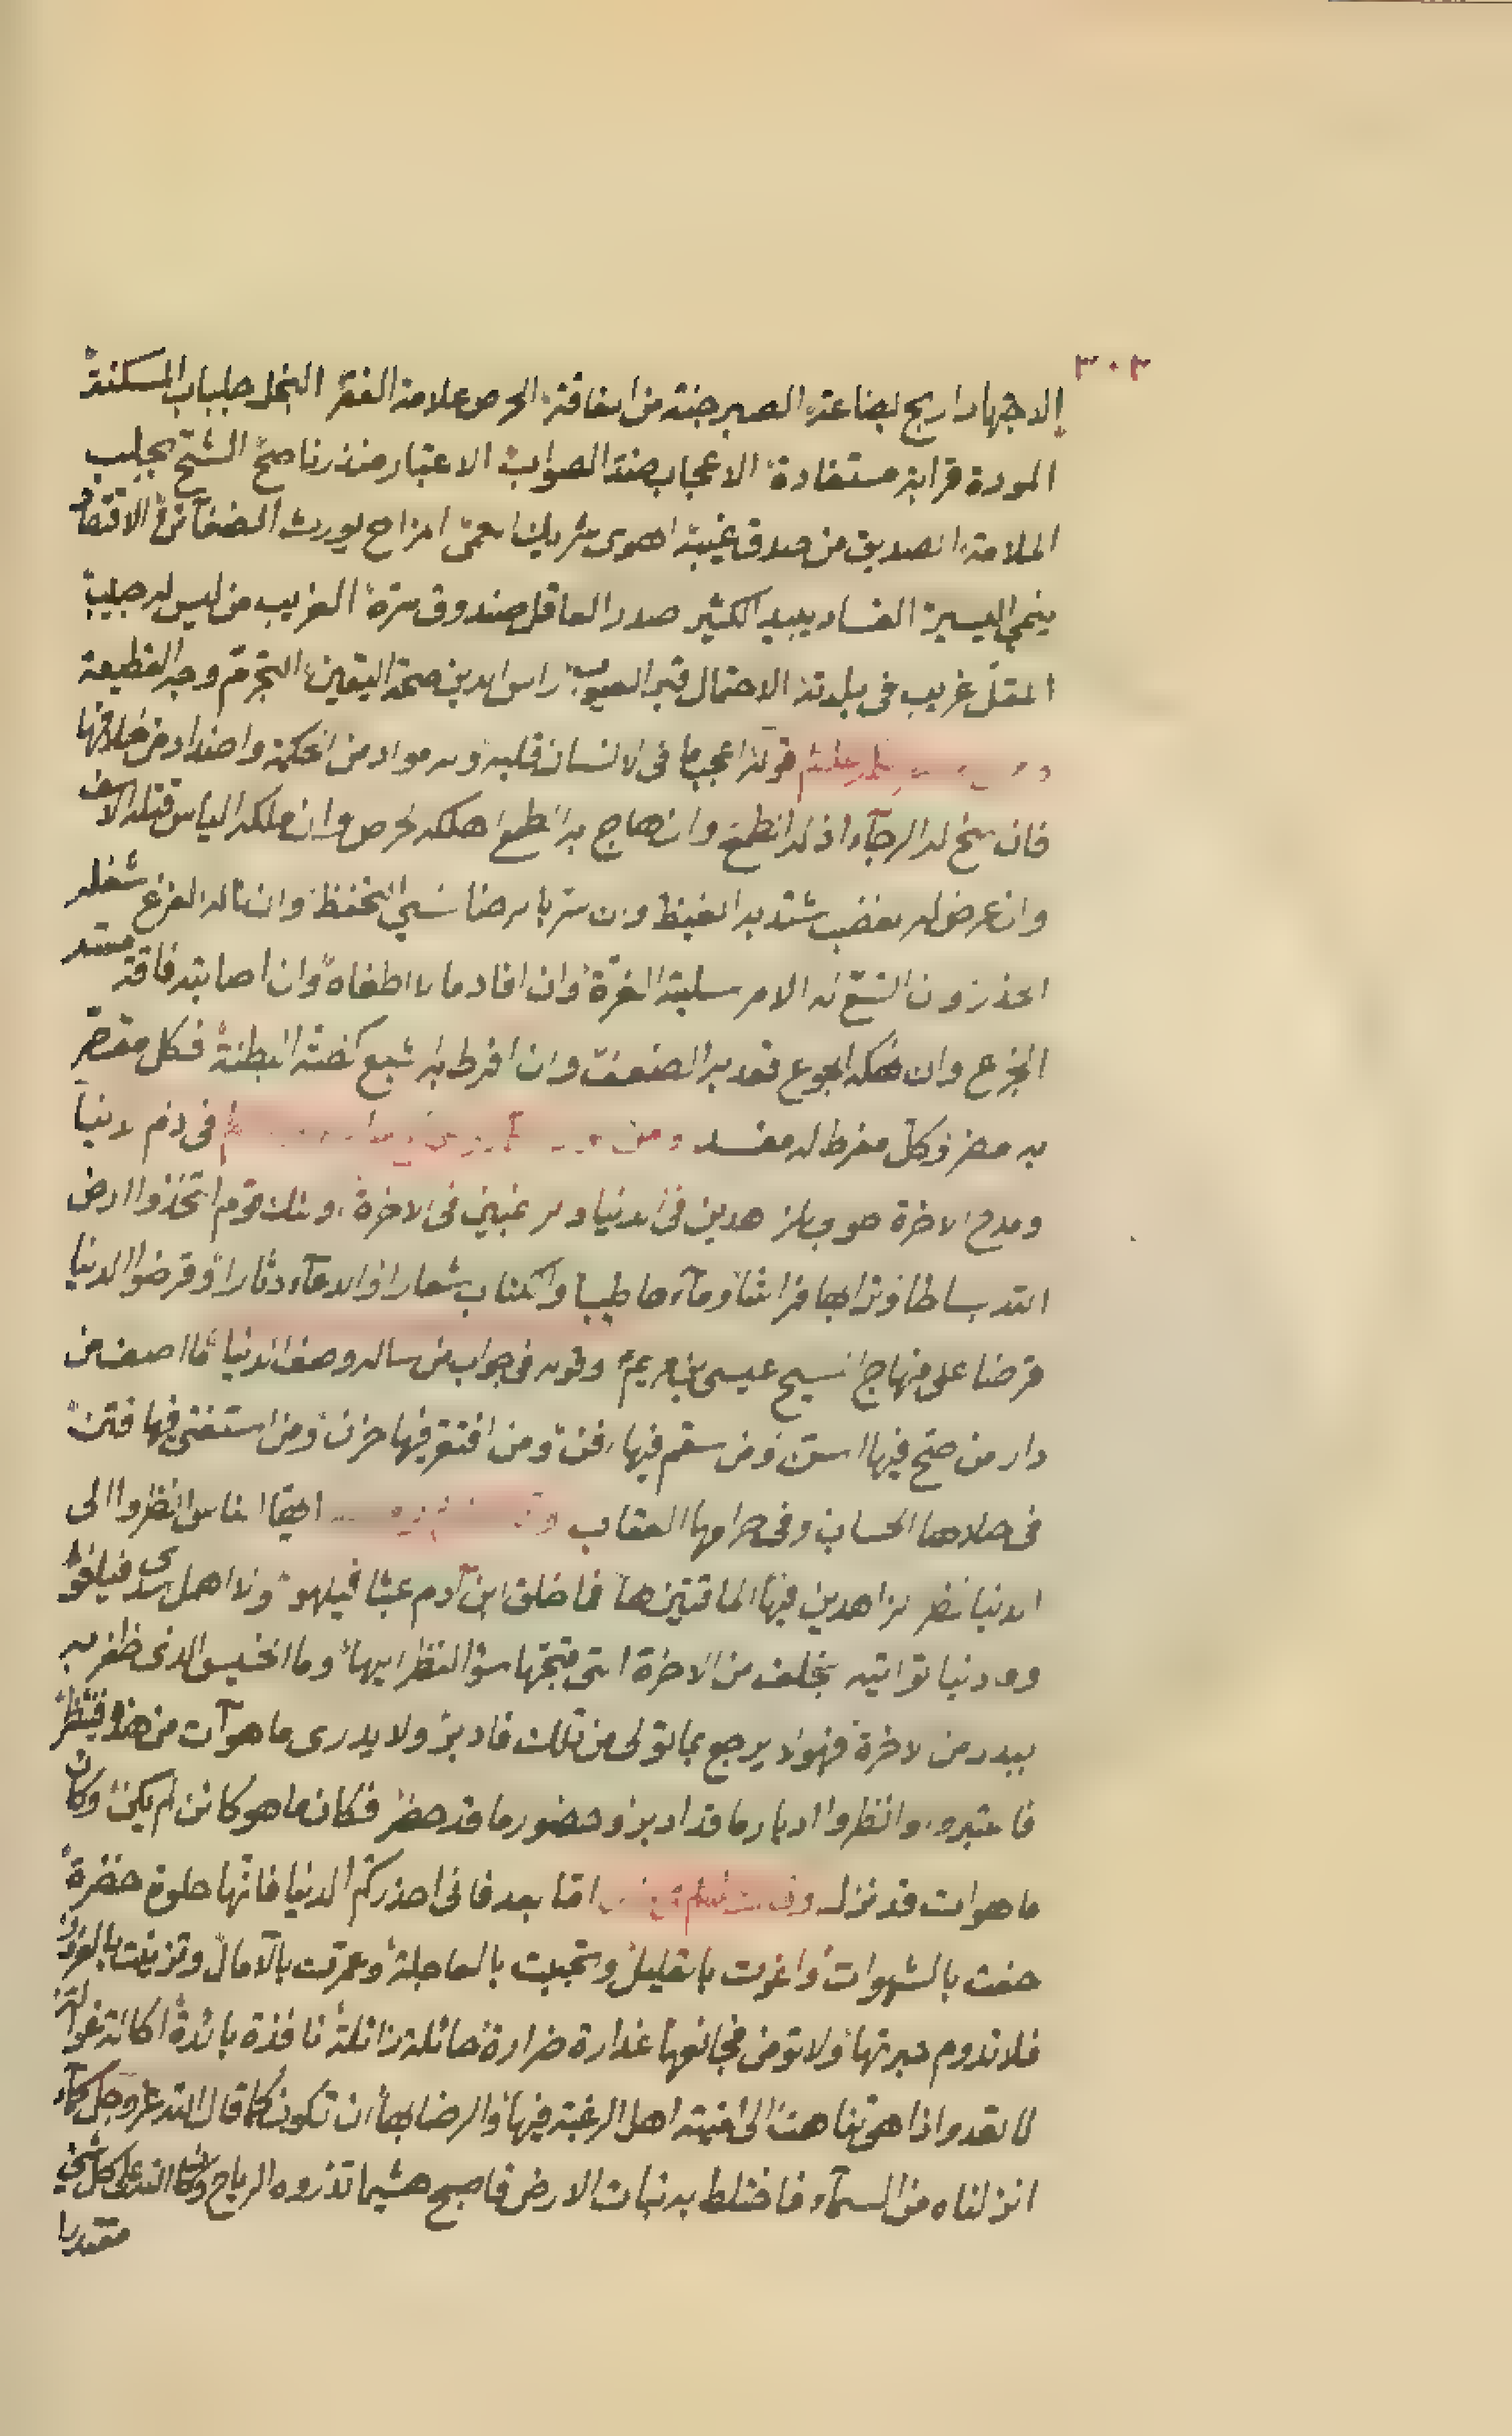 ٣٠٣
الاجتهاد اربح بضاعة الصبر جنة من الفاقة الحرص علامة الفقر البخل جلباب المسكنة
المودة قرابة مستفادة الاعجاب ضد الصواب الاعتبار منذر ناصح الشح يجلب
الملامة الصديق من صدق غيبه الهوى شريك العمى المزاح يورث الضغائن الاقتصاد
ينمي اليسير الفساد يبيد الكثير صدر العاقل صندوق سره الغريب من ليس له حبيب
المقل غريب في بلدته الاحتمال قبر العيوب راس الدين صحة اليقين التجرم وجه القطيعة
قوله اعجب ما في الانسان قلبه وله مواد من الحكمة واضداد من خلافها
فان سنح له الرجآء اذله الطمع وان هاج به الطمع اهلكه الحرص وان ملكه الياس قتله الاسف
وان عرض له الغضب اشتد به الغيظ وان سر بالرضا نسي التحفظ وان ناله الفزع شغله
الحذر وان اتسع له الامر سلبته الغرة وان افاد مالا اطغاه وان اصابته فاقة مسه
الجزع وان نهكه الجوع قعد به الضعف وان افرط به الشبع كظته البطنة فكل مقصر
به مضر وكل مفرط له مفسد ومن في ذم الدنيا
ومدح الاخرة طوبى للزاهدين في الدنيا والراغبين في الاخرة اولئك قوم اتخذوا الارض
الله بساطا وترابها فراشا ومآءها طيبا والكتاب شعارا والدعآء دثارا وقرضوا الدنيا
قرضا على منهاج المسيح عيسى بن مريم وقوله في جواب من ساله وصف الدنيا ما اصف من
دار من صح فيها امن ومن سقم فيها ومن افتقر فيها حزن ومن استغنى فيها فتن
في حلالها الحساب وفي حرامها العقاب ايها الناس انظروا الى
الدنيا نظر الزاهدين فيها الماقتين لها فما خلق ابن آدم عبثا فيلهو ولا اهمل سدى فيلغو
وما دنيا تواتيه بخلف من الاخرة التي قبحها سوء النظر اليها وما الخسيس الذى ظفر به
بيده من الاخرة فهو لا يرجع بما تولى من تلك فادبر ولا يدرى ما هو آت من هذه فينتظر
فاعتبروا وانظروا ادبار ما قد ادبر وحضور ما قد حضر فكان ما هو كائن لم يكن وكان
ما هو ات قد نزل اما بعد فانى احذركم الدنيا فانها حلوة خضرة
حفت بالشهوات وراقت بالقليل وتحببت بالعاجلة وعمرت بالآمال وتزينت بالغرور
فلا تدوم حبرتها ولا تؤمن فجائعها غدارة ضرارة حائلة زائلة نافذة بائدة اكالة غوالة
لا تعدو اذا هى تناهت الى امنية اهل الرغبة فيها والرضا بها ان تكون كما قال الله عز وجل كمآء
انزلناه من السمآء فاختلط به نبات الارض فاصبح هشيما تذروه الرياح وكان الله على كل شئ
مقتدرا